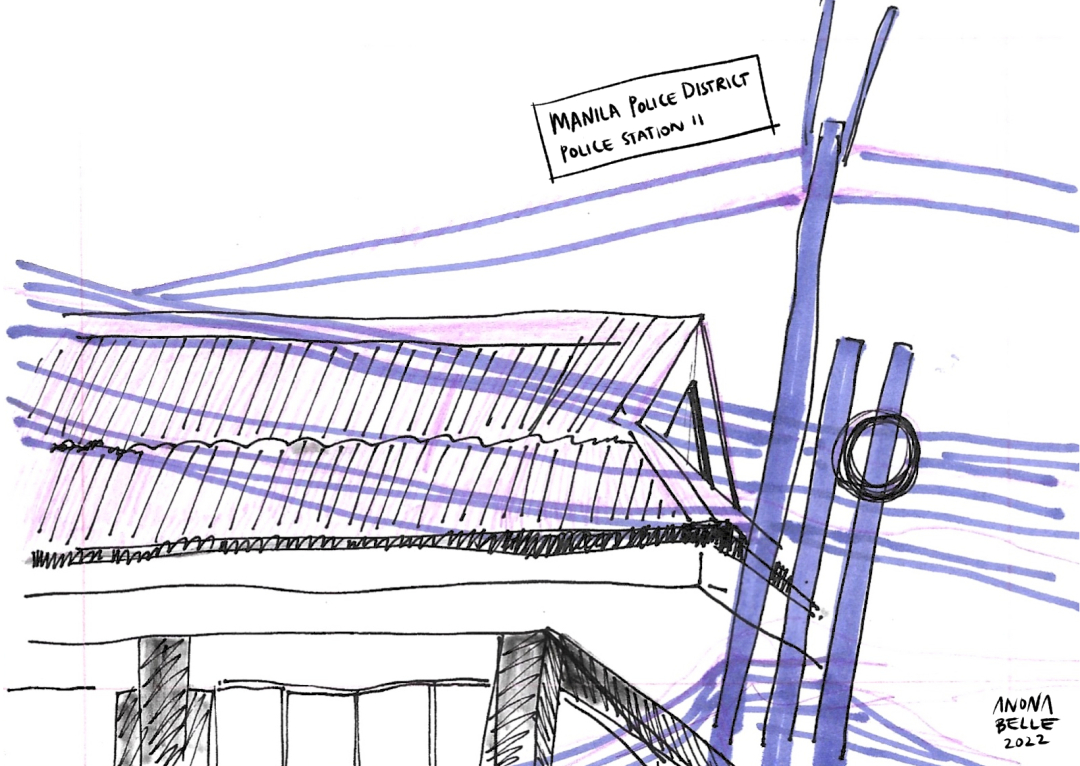 MANILA POLICE DISTRICT
POLICE STATION 11
ANONA
BELLE
2022